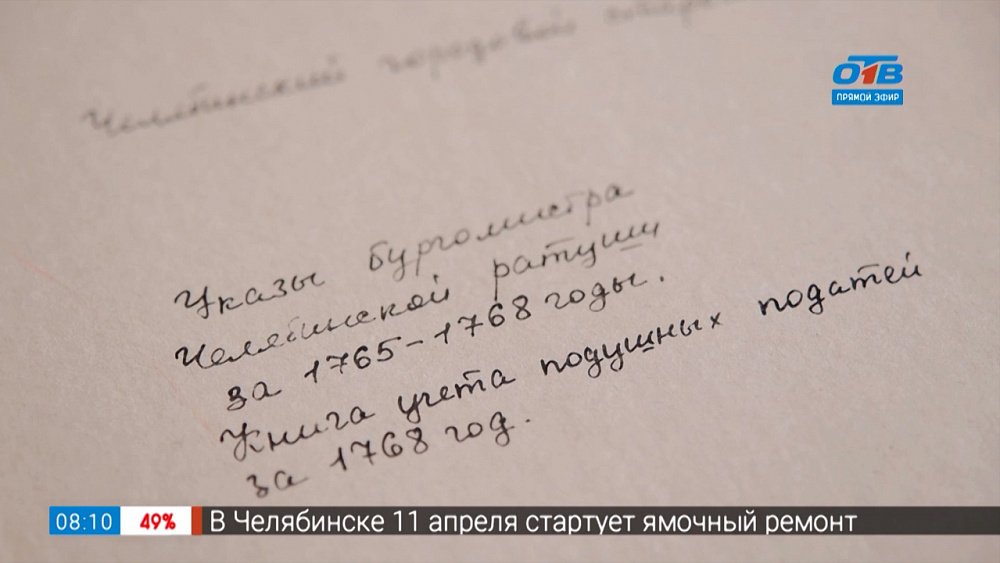 Челябинский городовой
ОТВ
ПРЯМОЙ ЭФИР
Указы бургомистра
Челябинской ратуши
за 1765-1768 годы.
Книга учета подушных податей
за 1768 год.
08:10 49% В Челябинске 11 апреля стартует ямочный ремонт